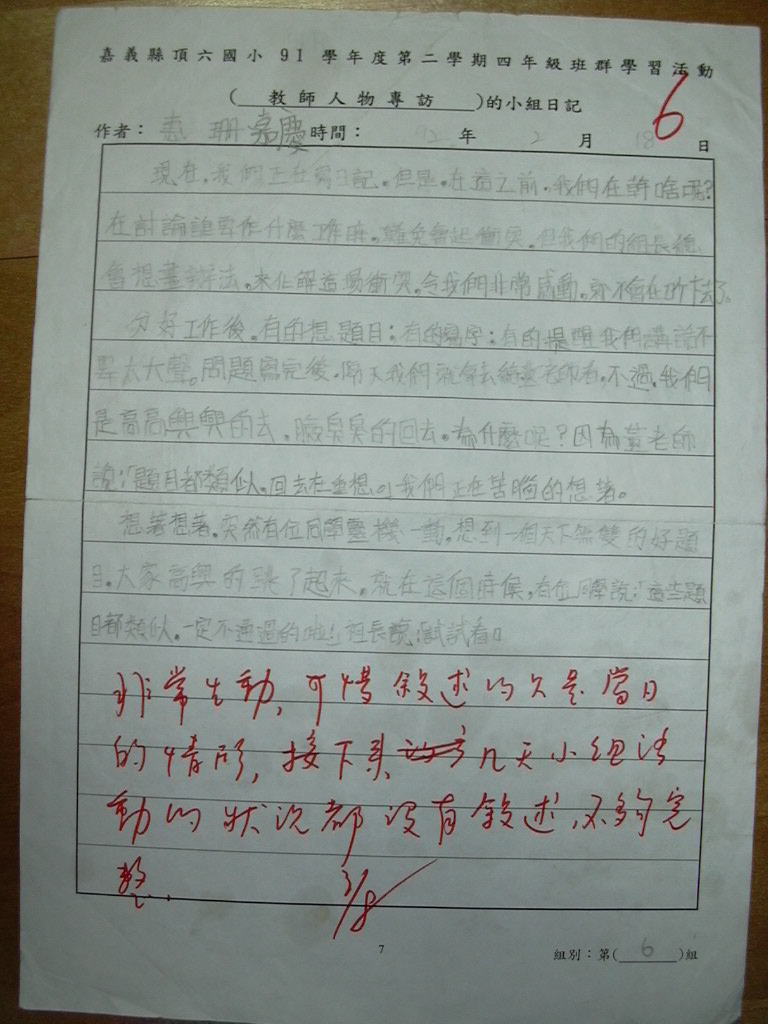 嘉義縣頂六國小 91 學年度第二學期四年級班群學習活動
(教師人物專訪)的小組日記
6
作者：惠珊嘉慶時間：92 年 2 月 18 日
現在，我們正在寫日記。但是，在這之前，我們在幹啥呢？
在討論誰要作什麼工作時，難免會起衝突，但我們的組長總
會想盡辦法，來化解這場衝突，令我們非常感動，就不會在吵下去了。
分好工作後，有的想題目；有的寫字；有的提醒我們講話不
要太大聲。問題寫完後，隔天我們就拿去給黃老師看，不過，我們
是高高興興的去，臉臭臭的回去。為什麼呢？因為黃老師
說：「題目都類似，回去在重想。」我們正在苦腦的想著。
想著想著，突然有位同學靈機一動，想到一個天下無雙的好題
目，大家高興的跳了起來。就在這個時候，有位同學說：「這些題
目都類似，一定不通過的啦！」組長說：「試試看」
非常生動，可惜敘述的只是當日
的情形，接下來幾天小組活
動的狀況都沒有敘述，不夠完
整..
3/8
7
組別：第(6)組